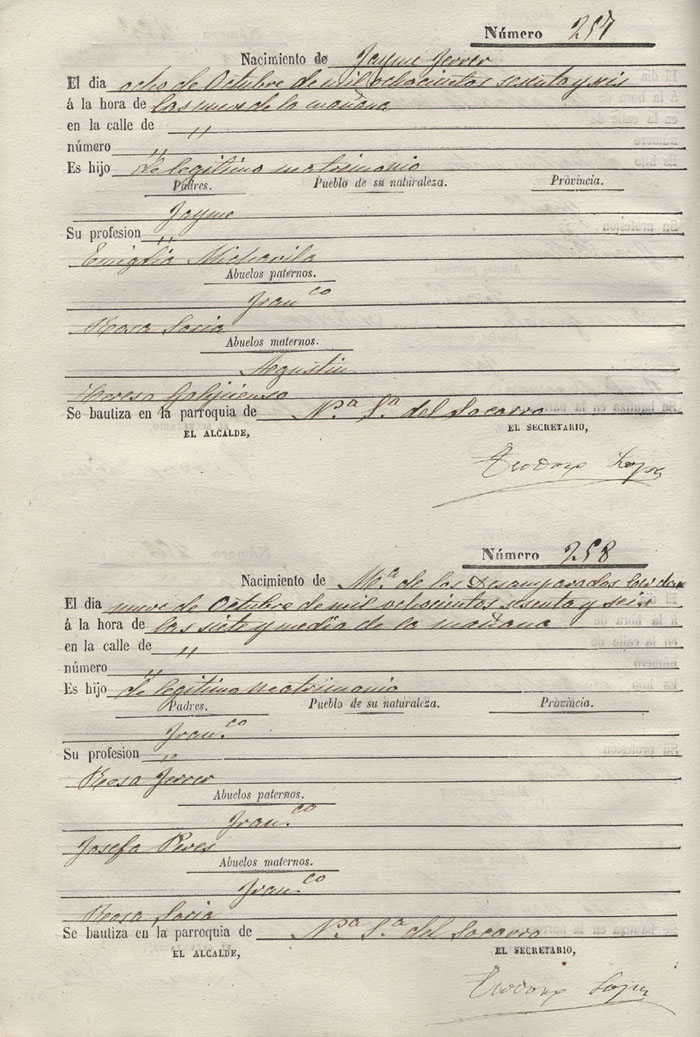 Número 257
Nacimiento de Jayme Ferrer
El dia ocho de Octubre de mil ochocientos sesenta y seis
á la hora de las nueve de la mañana
en la calle de "
número "
Es hijo de legitimo matrimonio
Padres. Pueblo de su naturaleza. Provincia.
Jayme
Su profesion "
Emiglia Michavila
Abuelos paternos.
Fran.co
Rosa Soria
Abuelos maternos.
Agustin
Teresa
Se bautiza en la parroquia de N.a S.a del Socorro
EL ALCALDE, EL SECRETARIO,
Teodoro Lopez
Número 258
Nacimiento de M.a de los Desamparados
El dia nueve de Octubre de mil ochocientos sesenta y seis
á la hora de las siete y media de la mañana
en la calle de "
número "
Es hijo de legitimo matrimonio
Padres. Pueblo de su naturaleza. Provincia.
Fran.co
Su profesion "
Rosa Ferrer
Abuelos paternos.
Fran.co
Josefa Peres
Abuelos maternos.
Fran.co
Rosa Soria
Se bautiza en la parroquia de N.a S.a del Socorro
EL ALCALDE, EL SECRETARIO,
Teodoro Lopez